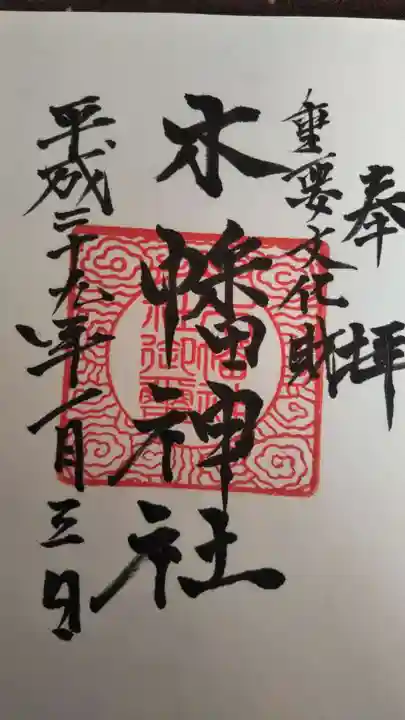 奉拝
重要文化財
水幡神社
平成二十九年一月三日